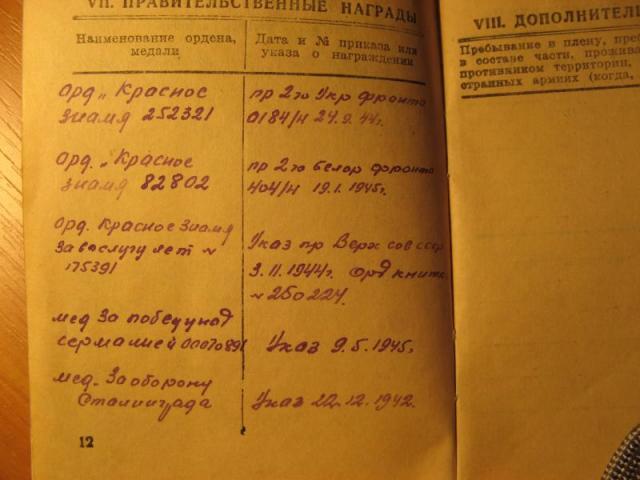 VII. ПРАВИТЕЛЬСТВЕННЫЕ НАГРАДЫ
Наименование ордена,
медали
Дата и № приказа или
указа о награждении
Орд „ Красное
Знамя 252321
пр 2го Укр фронта
0184/н 24.9.44г.
Орд. „ Красное
знамя 82802
пр 2го белор фронта
404/н 19.1.1945г.
Орд. Красное Знамя
За выслугу лет №
175391
Указ пр Верх сов ссср
3.11.1944г. орд книжк
№ 250224
мед За победу над
германией 0007089
Указ 9.5.1945г
мед. За оборону
Сталинграда
Указ 22.12.1942г
12
VIII. ДОПОЛНИТЕЛ
Пребывание в плену, преб
в составе части, прожива
противником территории,
странных армиях (когда,